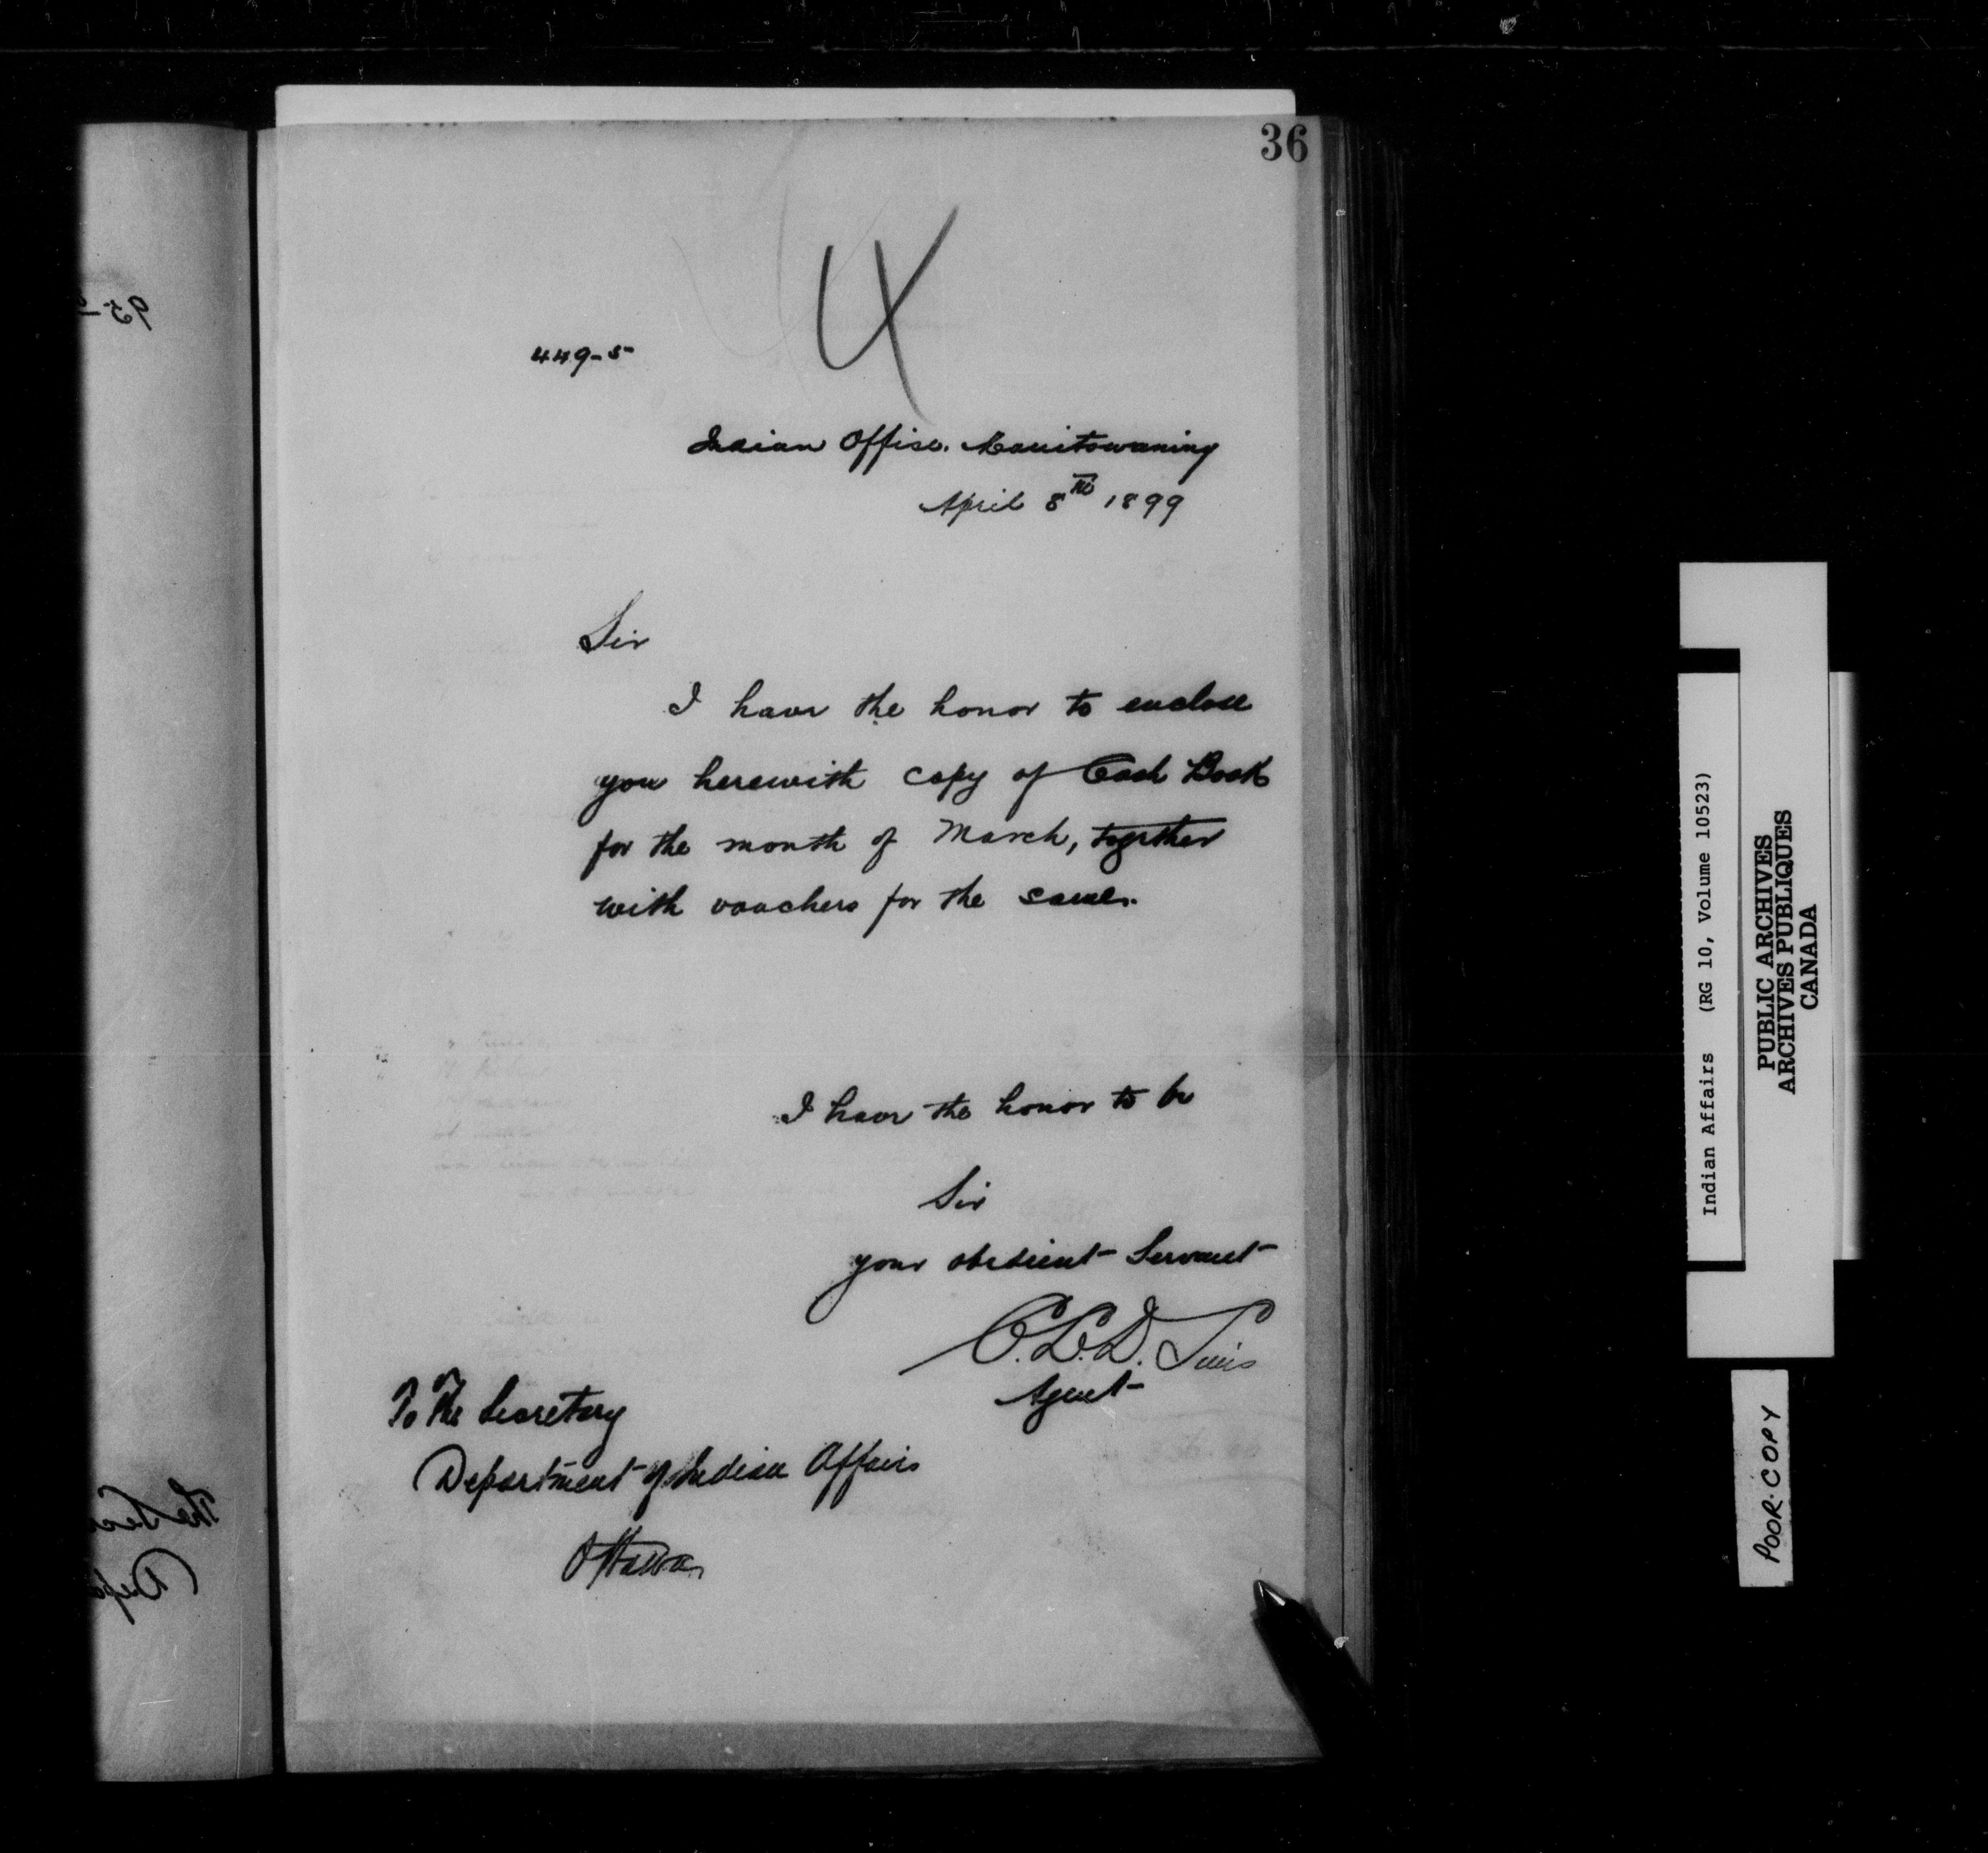 36
4
449-5
Indian Office. Manitowaning
April 8th 1899
Sir
I have the honor to enclose
you herewith copy of Cash Book
for the month of March, together
with vouchers for the same.
I have the honor to be
Sir
your obedient Servant
C.L.D. Sims
Agent
To The Secretary
Department of Indian Affairs
Ottawa
Indian Affairs (RG 10, Volume 10523)
PUBLIC ARCHIVES
ARCHIVES PUBLIQUES
CANADA
POOR COPY